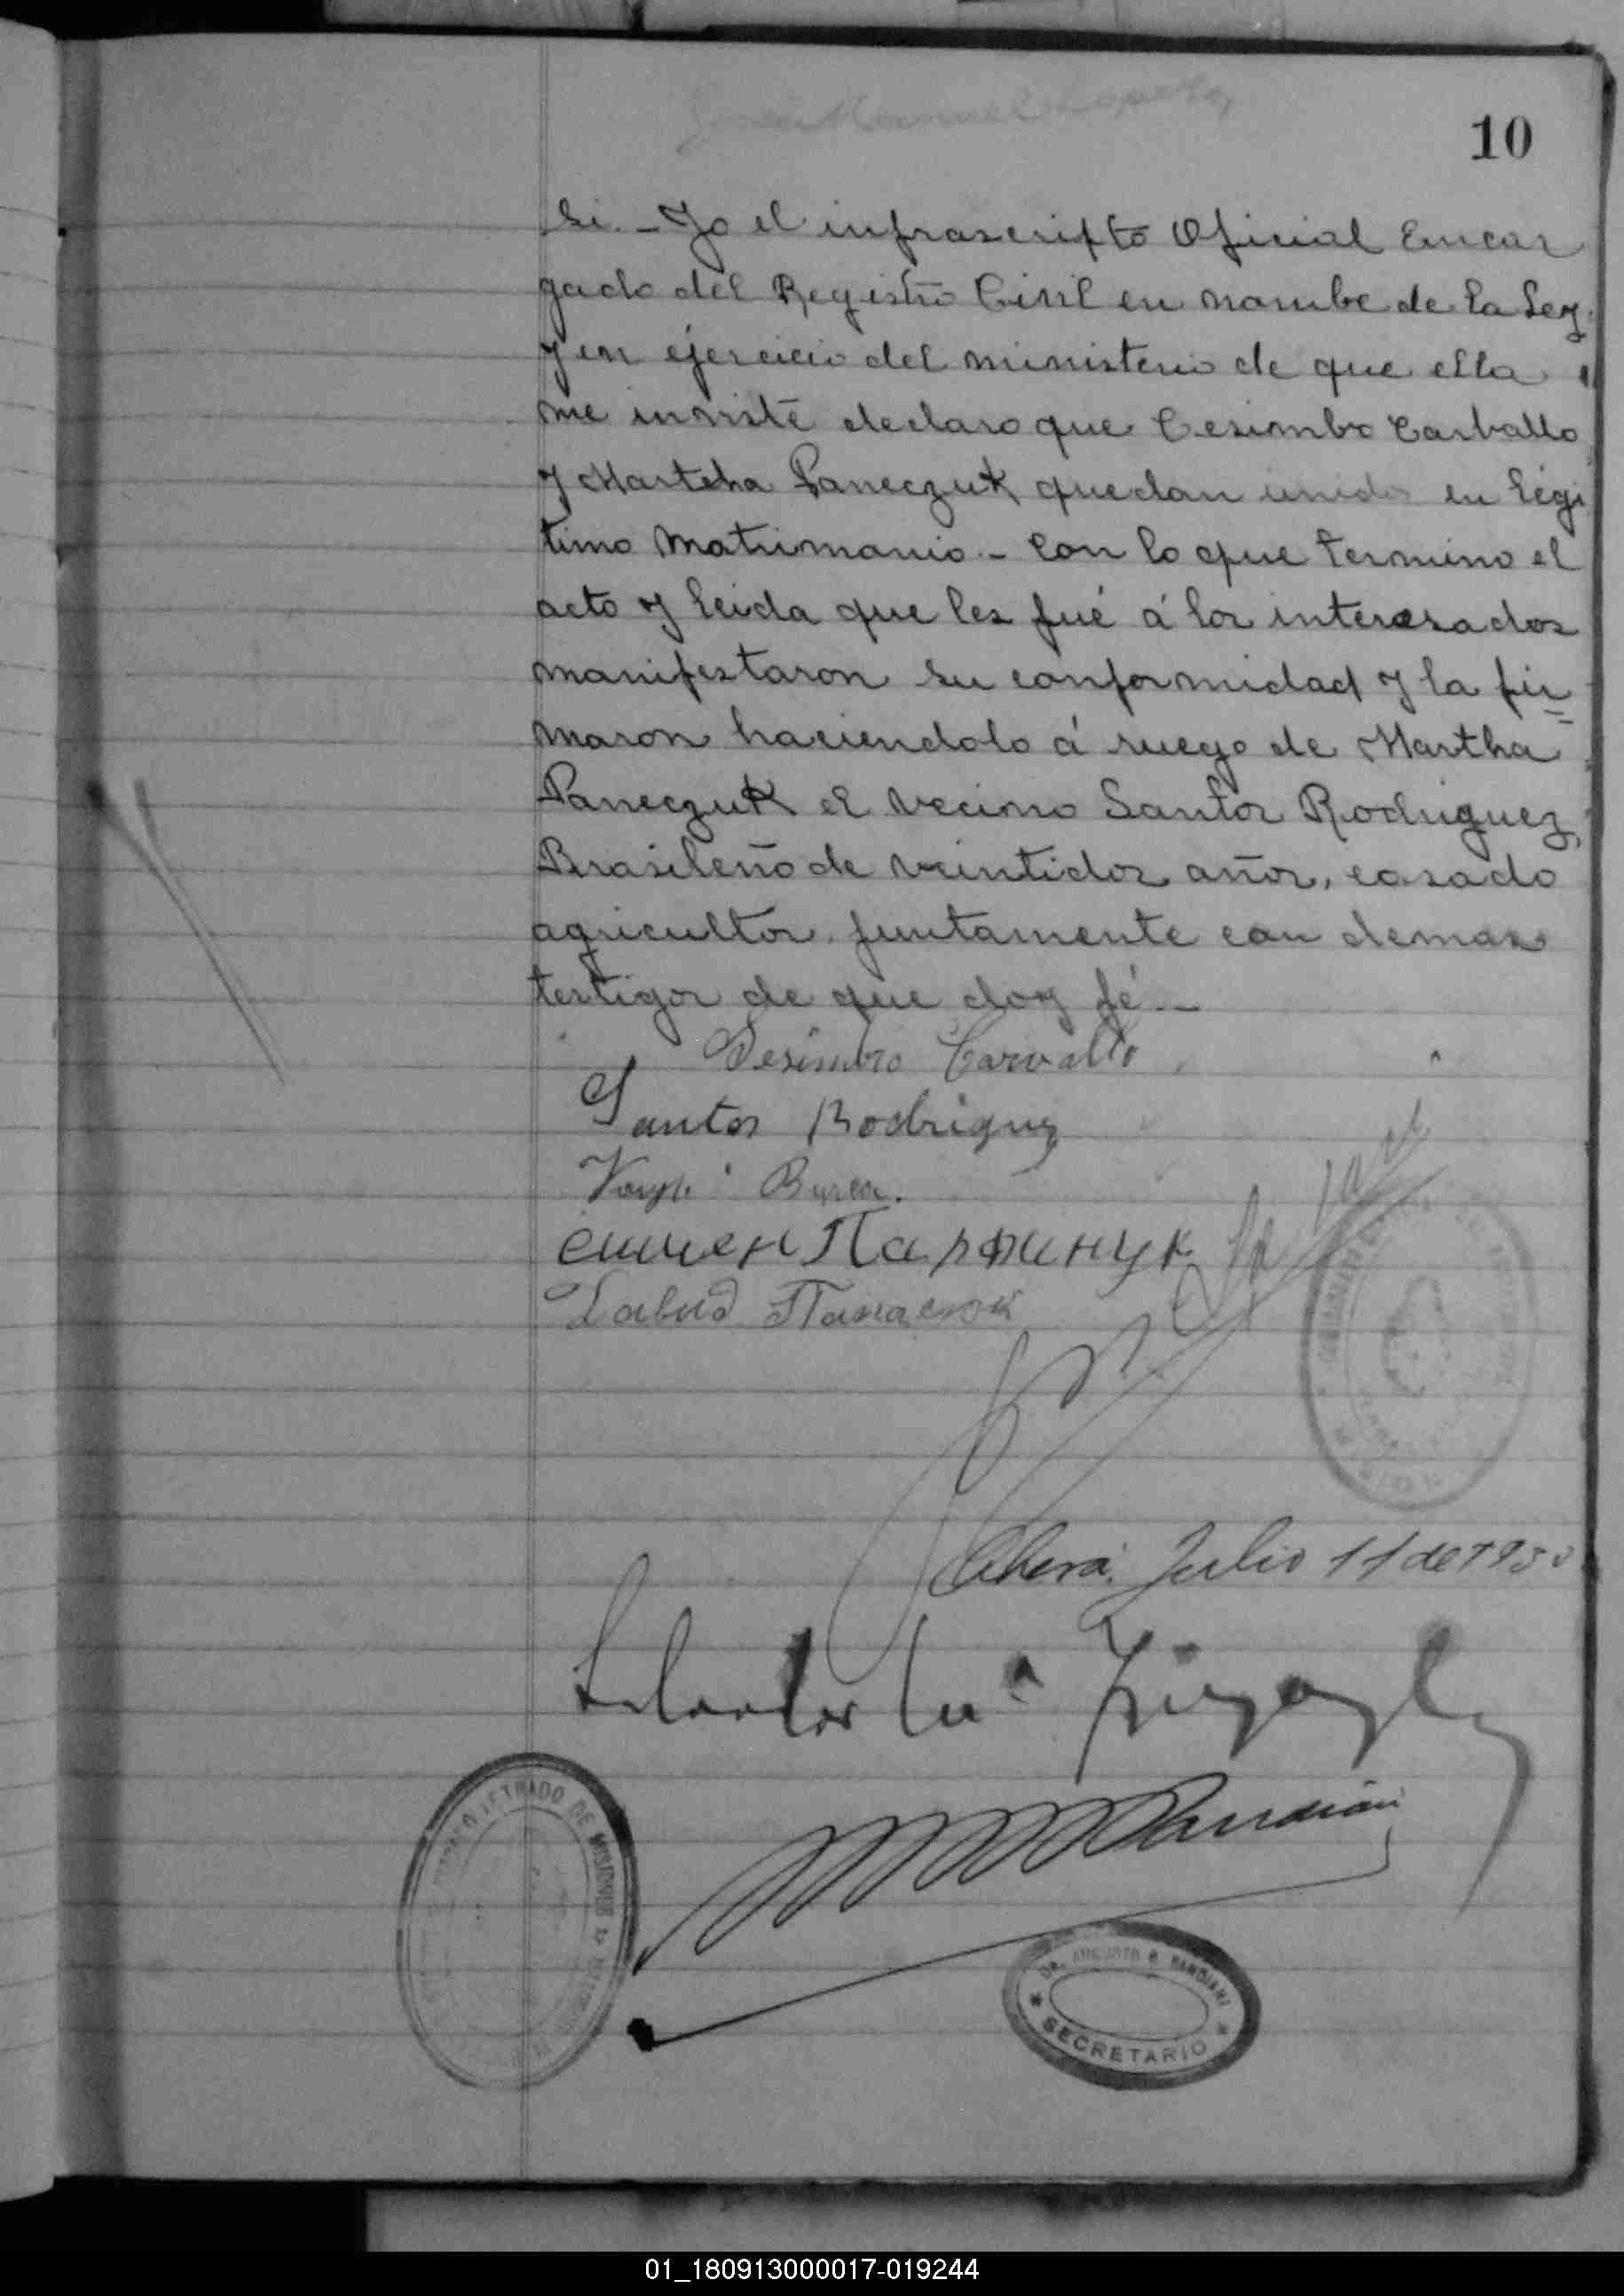 10
Si. - Yo el infrascripto Oficial Encar
gado del Registro Civil en nombe de la Ley
y en ejercicio del ministerio de que ella
me inviste declaro que Cesimbo Carballo
y Marteha Paneczuk quedan unidos en legi
timo matrimonio. - Con lo que termino el
acto y leida que les fué á los interesados
manifestaron su conformidad y la fir
maron haciendolo á ruego de Martha
Paneczuk el vecino Santos Rodriguez,
Brasileño de veintidos años, casado
agricultor juntamente con demas
testigos de que doy fé. -
Desimbro Carvallo
Santos Rodriguz
Парфинук
Давид Панасюк
Julio 11 de 193
LETRADO DE MISIONES
DR. AUGUSTO
SECRETARIO
01_180913000017-019244